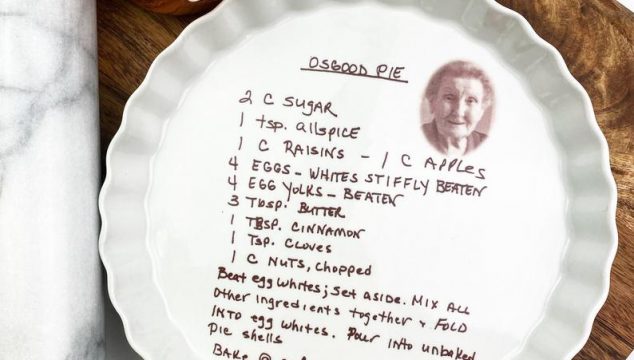 OSGOOD PIE
2 C SUGAR
1 tsp. allspice
1 C RAISINS - 1 C APPLES
4 EGGS - WHITES STIFFLY BEATEN
4 EGG YOLKS - BEATEN
3 Tbsp. BUTTER
1 TBSP. CINNAMON
1 Tsp. CLOVES
1 C NUTS, CHOPPED
Beat egg whites; Set aside. Mix All
Other ingredients together & FOLD
INTO egg whites. Pour into unbaked
Pie shells
BAKE @